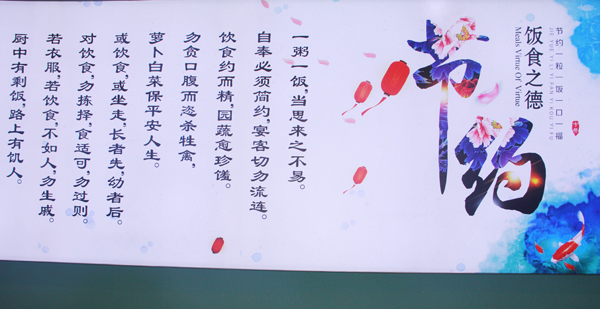 节约一粒一饭一口一福
饭食之德
Meals Virtue Of Virtue
节约
一粥一饭,当思来之不易。
自奉必须简约,宴客切勿流连。
饮食约而精,园蔬愈珍馐。
勿贪口腹而恣杀牲禽,
萝卜白菜保平安人生。
或饮食,或坐走,长者先,幼者后。
对饮食,勿拣择,食适可,勿过则。
若衣服,若饮食,不如人,勿生戚。
厨中有剩饭,路上有饥人。